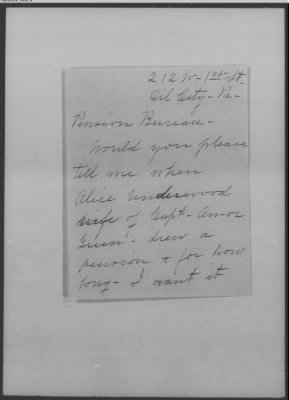 212 W - 1st St.
Oil City - Pa -
Pension Bureau -
Would you please
tell me when
Alice Underwood
wife of Capt - Amor
Guen - drew a
pension & for how
long - I want it